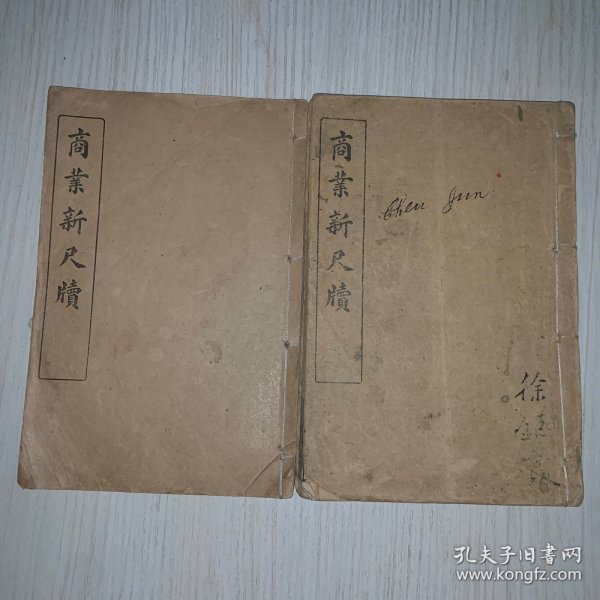 商業新尺牘
商業新尺牘
Chen Jun
徐
孔夫子旧书网
www.kongfz.com